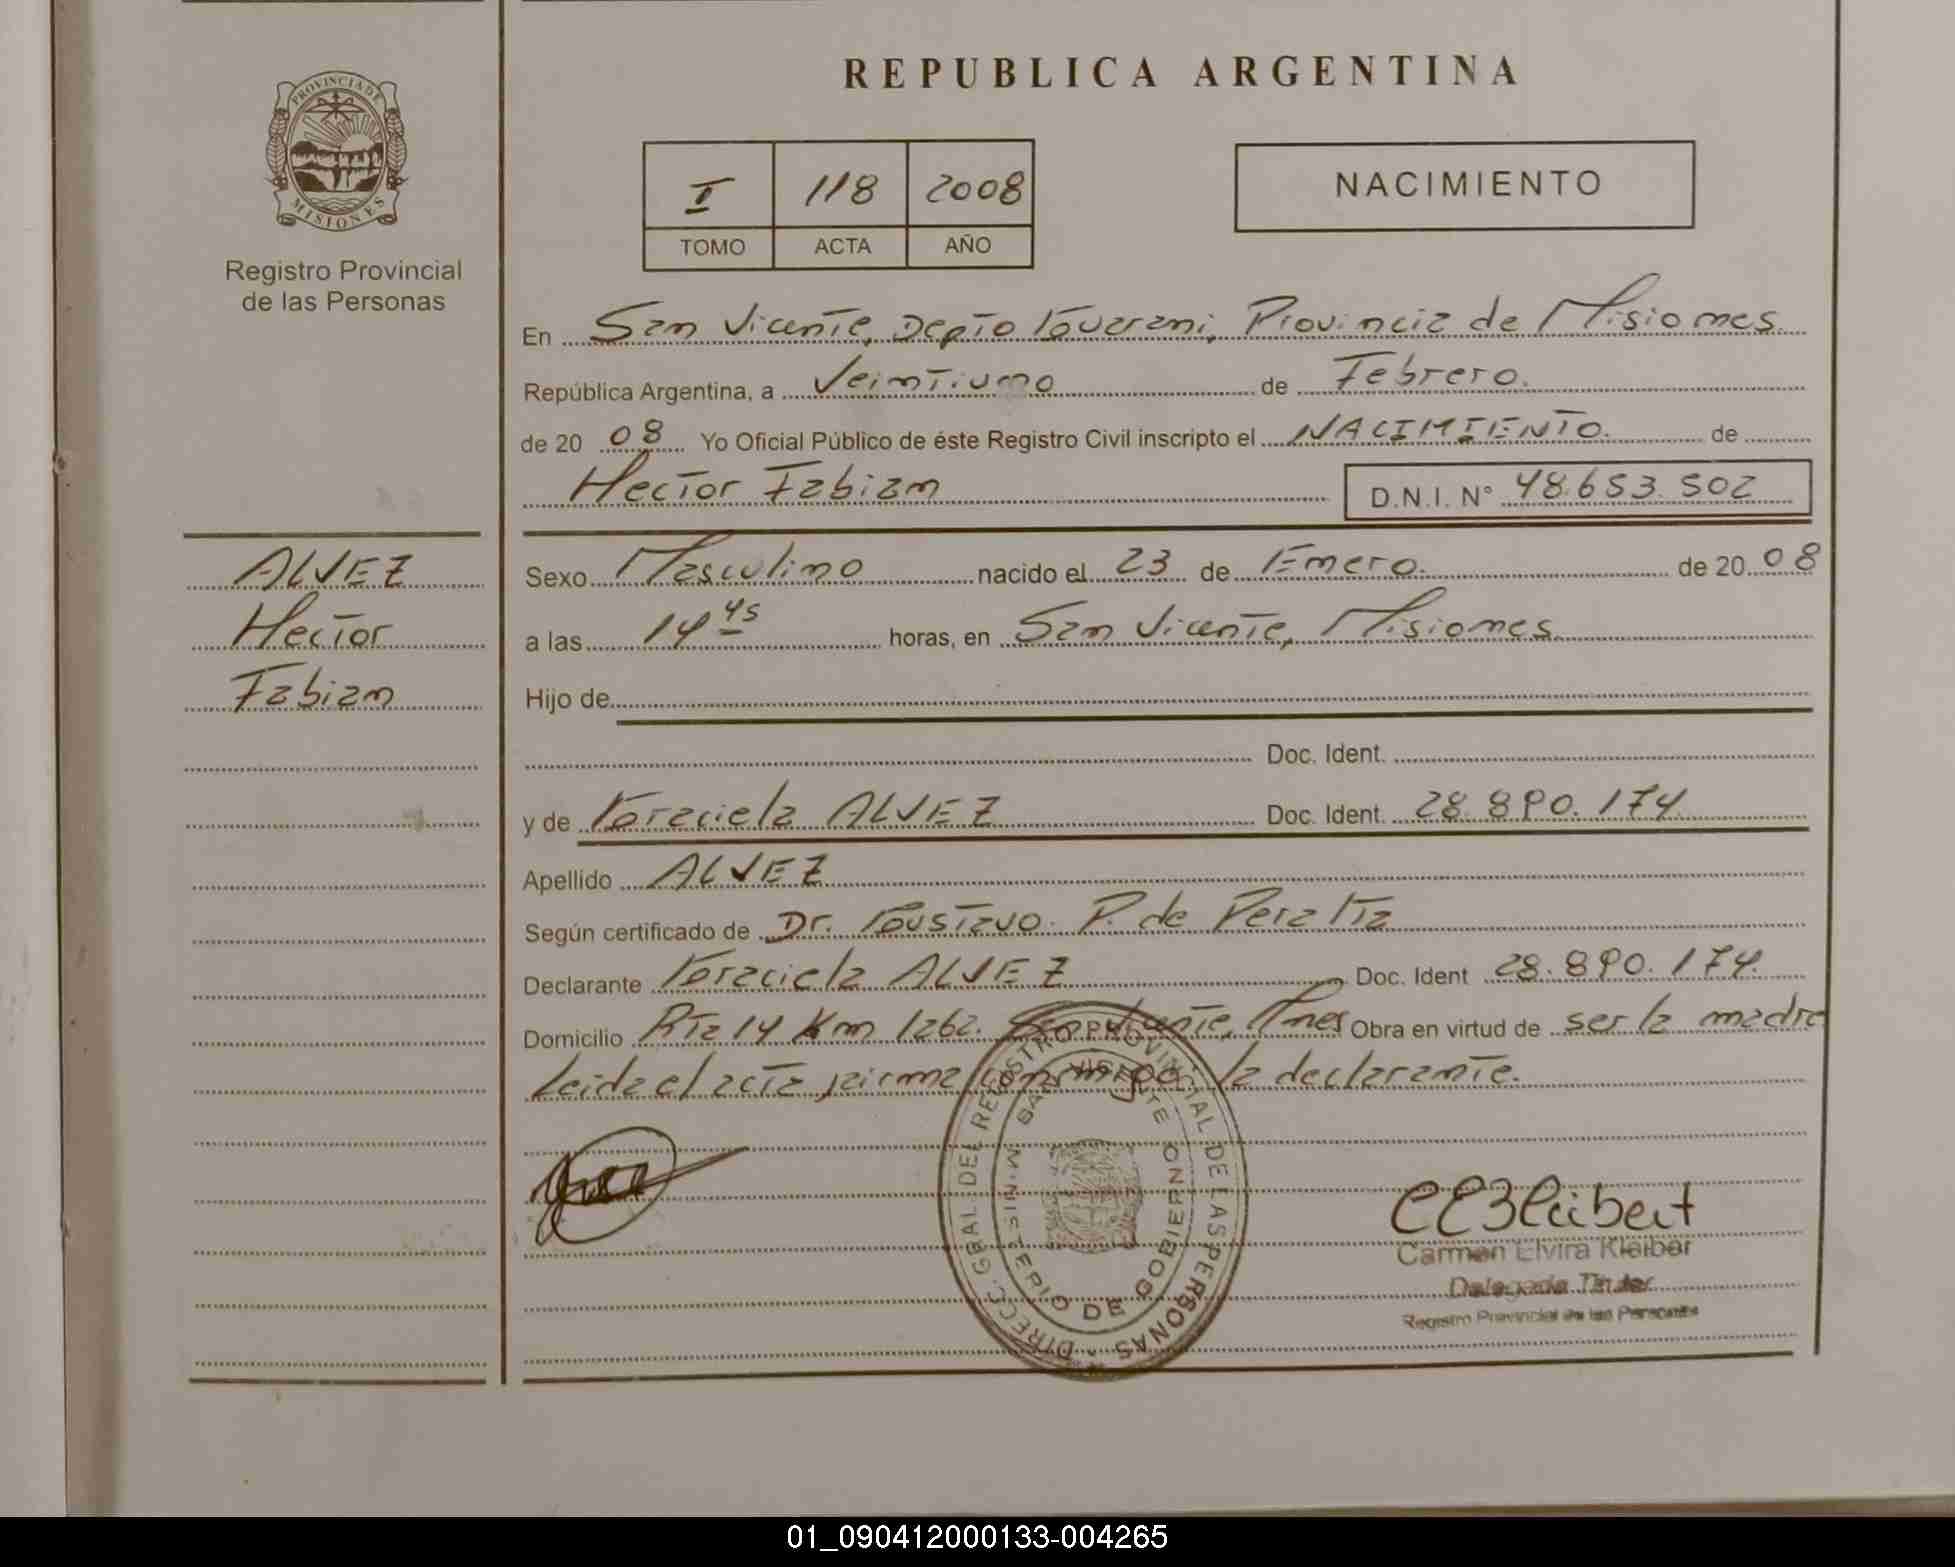 PROVINCIA DE
MISIONES
Registro Provincial
de las Personas
REPUBLICA ARGENTINA
I 118 2008
TOMO ACTA AÑO
NACIMIENTO
En San Vicente, Depto Guarani, Provincia de Misiones
República Argentina, a Veintiuno de Febrero.
de 20 08 Yo Oficial Público de éste Registro Civil inscripto el NACIMIENTO. de
Hector Fabian D.N.I. N° 48.653.502
ALVEZ
Hector
Fabian
Sexo Masculino nacido el 23 de Enero. de 20 08
a las 14 45 horas, en San Vicente, Misiones
Hijo de
Doc. Ident.
y de Graciela ALVEZ Doc. Ident. 28.890.174
Apellido ALVEZ
Según certificado de Dr. Gustavo P. de Peralta
Declarante Graciela ALVEZ Doc. Ident 28.890.174.
Domicilio Rta 14 Km 1262. San Vicente, Mnes Obra en virtud de ser la madre
Leida el acta firma conmigo la declarante.
DIRECC. GRAL. DEL REGISTRO PROVINCIAL DE LAS PERSONAS
SAN VICENTE
MINISTERIO DE GOBIERNO
Carmen Elvira Kleiber
Delegada Titular
Registro Provincial de las Personas
01_090412000133-004265